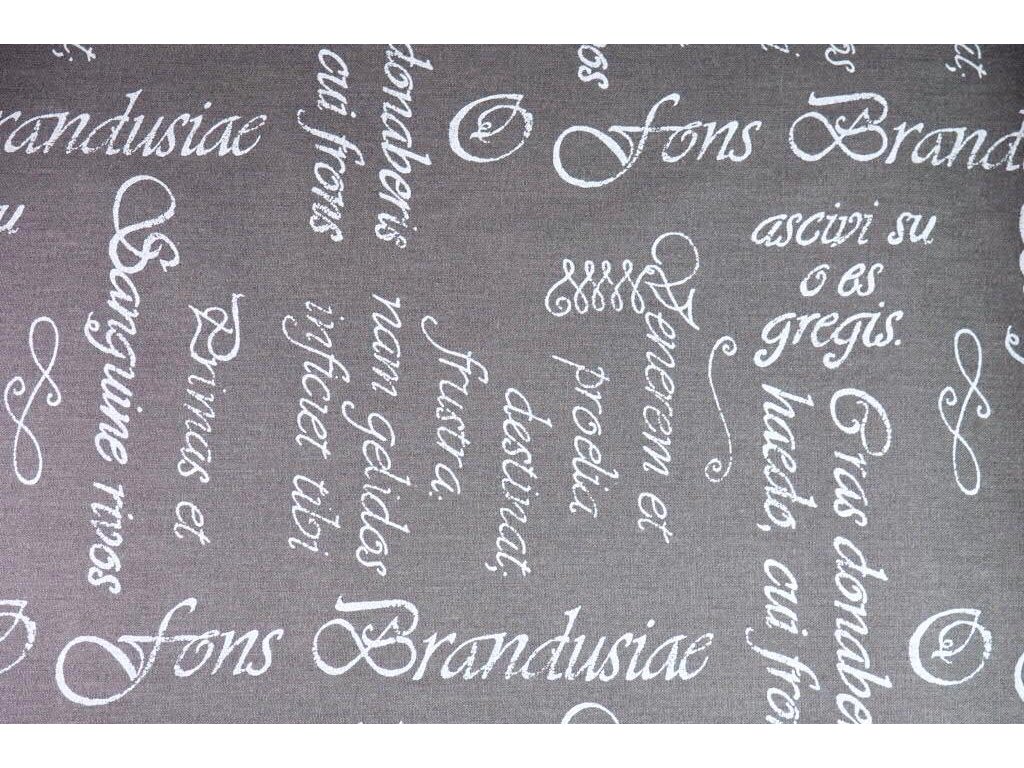 O Fons Brand
randusiae
donaberis
cui frons
vos
ascivi su
o es
gregis.
u
Sanguine rivos
Primas et
inficiet tibi
nam gelidos
frustra.
destinat,
proelia
Venerem et
Cras donaber
haedo, cui fron
Fons Brandusiae
O